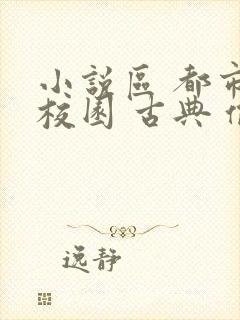 小說區 都市
校園 古典
逸静